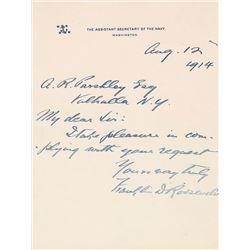 THE ASSISTANT SECRETARY OF THE NAVY.
WASHINGTON.
Aug. 12
1914
A. R. Parshley Esq
Valhalla N.Y.
My dear Sir:
I take pleasure in com-
plying with your request
Yours very truly
Franklin D Roosevelt